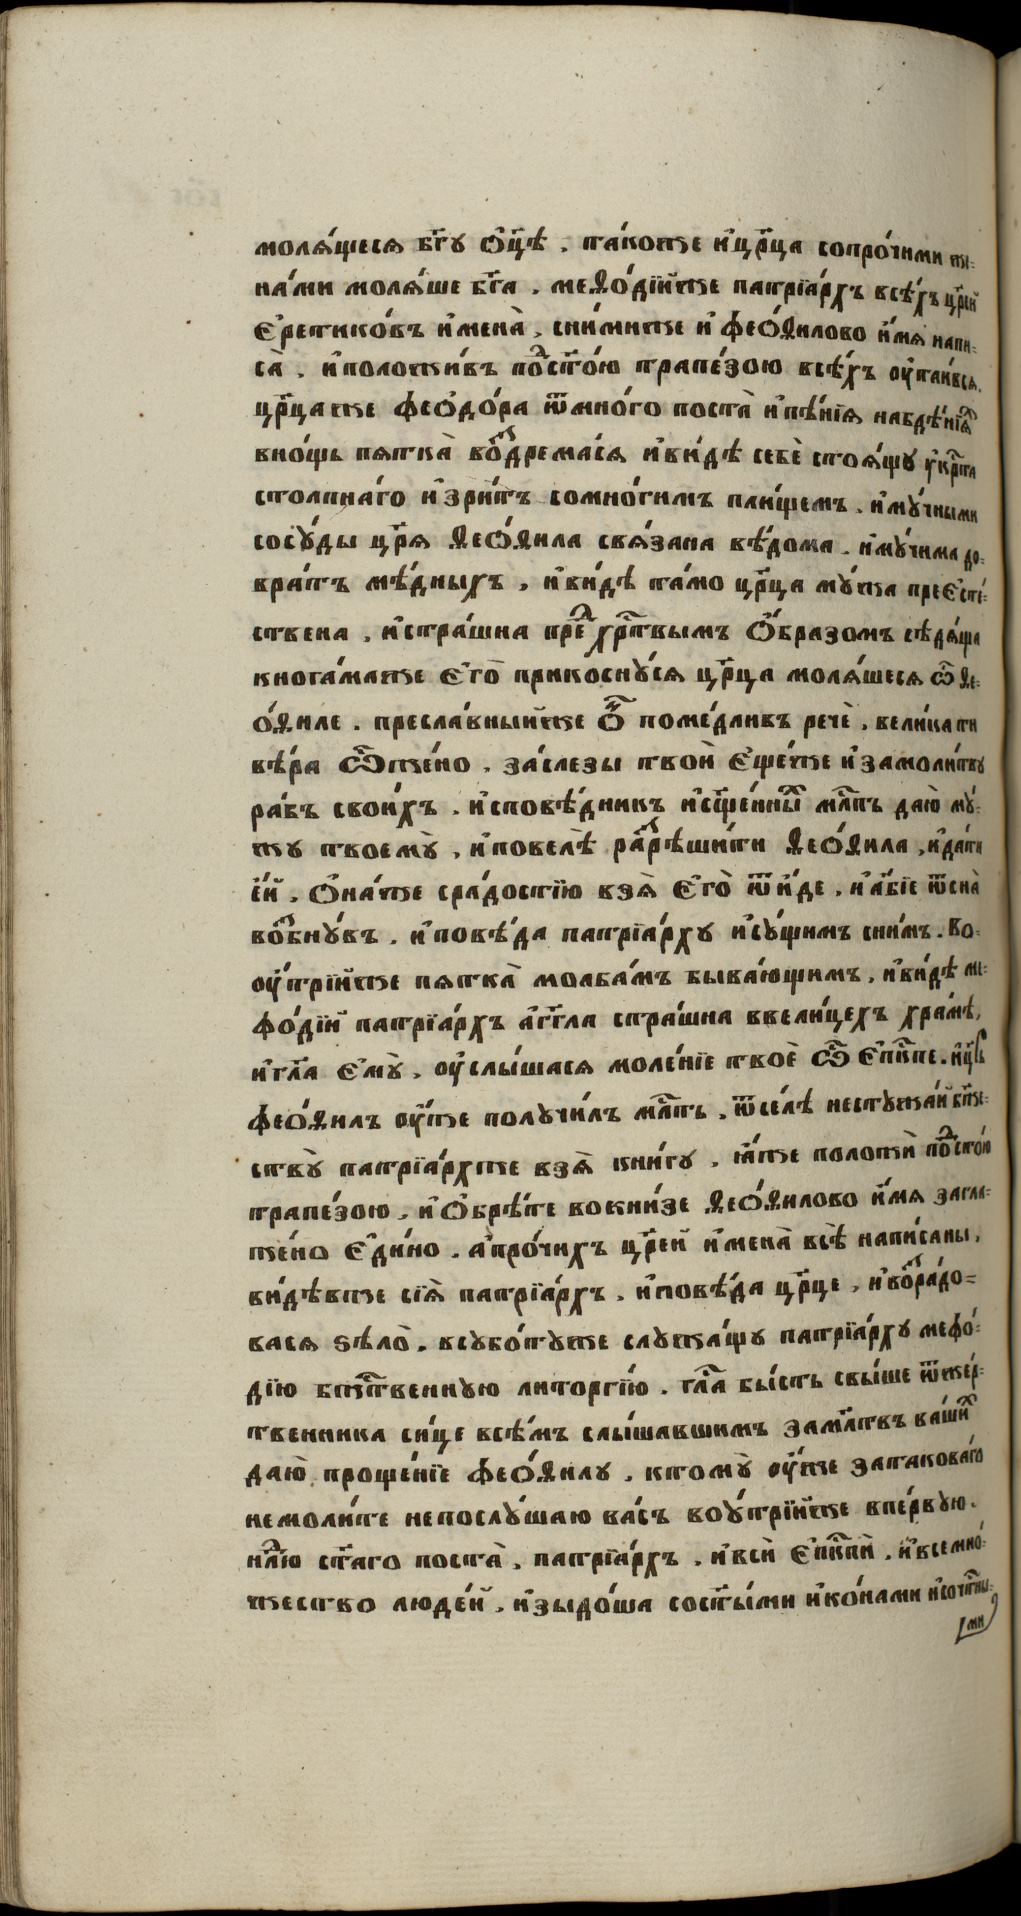 молѧ́щесѧ бг҃ꙋ ѻ҆ц҃ѣ . та́коже и҆цр҃ца сопро́чими же=
на́ми молѧ́ше бг҃а . меѳо́дїйже патрїа́рхъ всѣ́хъ цр҃ей
є҆ретико́въ и҆мена̀ . сни́миже и҆ фео́ѳилово и҆́мѧ напи=
са̀ . и҆положи́въ поⷣст҃о́ю трапе́зою всѣ́хъ оу҆таи́всѧ .
цр҃цаже феѻдо́ра ѿмно́го поста̀ и҆пѣ́нїѧ набдѣ́нїѧ
вно́щь пѧтка̀ воⷥдрема́сѧ и҆ви́дѣ себѐ стоѧ́щꙋ у҆крⷭ҇та
столпна́го и҆зри́тъ сомно́гимъ пли́щемъ . и҆мꙋ́чными
сосꙋ́ды цр҃ѧ ѳео́ѳила свѧ́зана вѣ́дома . и҆мꙋ́чима до=
вра́тъ мѣ́дныхъ . и҆ви́дѣ та́мо цр҃ца мꙋ́жа преє҆сте́=
ствена . и҆стра́шна преⷣ хрⷭ҇товымъ ѻ҆́бразомъ сѣдѧ́ща
кнога́маже є҆го̀ прикоснꙋ́сѧ цр҃ца молѧ́шесѧ ѡ҆ ѳе=
о́ѳиле . пресла́вныйже ѻ҆́н поме́дливъ речѐ . вели́ка ти
вѣ́ра ѡ҆ же́но . засле́зы твоѝ є҆ще́же и҆замоли́твꙋ
ра́бъ свои́хъ . и҆сповѣ́дникъ и҆сщ҃е́нныⷯ млⷭ҇ть даю̀ мꙋ́=
жꙋ твоемꙋ̀ , и҆повелѣ̀ раⷥрѣши́ти ѳео́ѳила , и҆да́ти
є҆́й . ѻ҆на́же сра́достїю взѧ̀ є҆го̀ ѿи́де , и҆а҆́бїе ѿсна̀
воⷥбнꙋ́въ . и҆повѣ́да патрїа́рхꙋ и҆сꙋ́щимъ сни́мъ . во=
оу҆́трїйже пѧтка̀ молба́мъ быва́ющимъ , и҆ви́дѣ ме=
фо́дїй патрїа́рхъ а҆́гг҃ла стра́шна ввели́цехъ хра́мѣ ,
и҆гл҃а є҆мꙋ̀ . оу҆слы́шасѧ моле́нїе твоѐ ѡ҆ є҆пⷭ҇кпе . и҆цр҃ь
фео́ѳилъ оу҆́же полꙋчи́лъ млⷭ҇ть . ѿселѣ̀ нестꙋжа́й бжⷭ҇е=
ствꙋ̀ патрїа́рхже взѧ̀ кни́гꙋ , ю҆́же положѝ поⷣст҃о́ю
трапе́зою , и҆ѻ҆брѣ́те вокни́зе ѳео́ѳилово и҆́мѧ загла=
жено є҆ди́но . а҆про́чихъ цр҃ей и҆мена̀ всѣ̀ напи́саны ,
ви́дѣвже сїѧ̀ патрїа́рхъ . и҆повѣ́да цр҃це , и҆воⷥра́до=
васѧ ѕѣло̀ . всꙋбо́тꙋже слꙋжа́щꙋ патрїа́рхꙋ мефо́=
дїю бжⷭ҇твеннꙋю литоргі́ю . гла́съ бы́сть свы́ше ѿже́р=
твенника си́це всѣ́мъ слы́шавшимъ замлⷭ҇твъ ва́шиⷯ
даю̀ проще́нїе фео́ѳилꙋ . ктомꙋ̀ оу҆́же затакова́го
немоли́те непослꙋ́шаю ва́съ воꙋ́трїйже впе́рвꙋю .
нⷣлю ст҃а́го поста̀ , патрїа́рхъ . и҆всѝ є҆пⷭ҇кпи . и҆всемно́=
жество люде́й . и҆зыдо́ша сост҃ы́ми и҆ко́нами и҆сочтⷭ҇ны=
ми